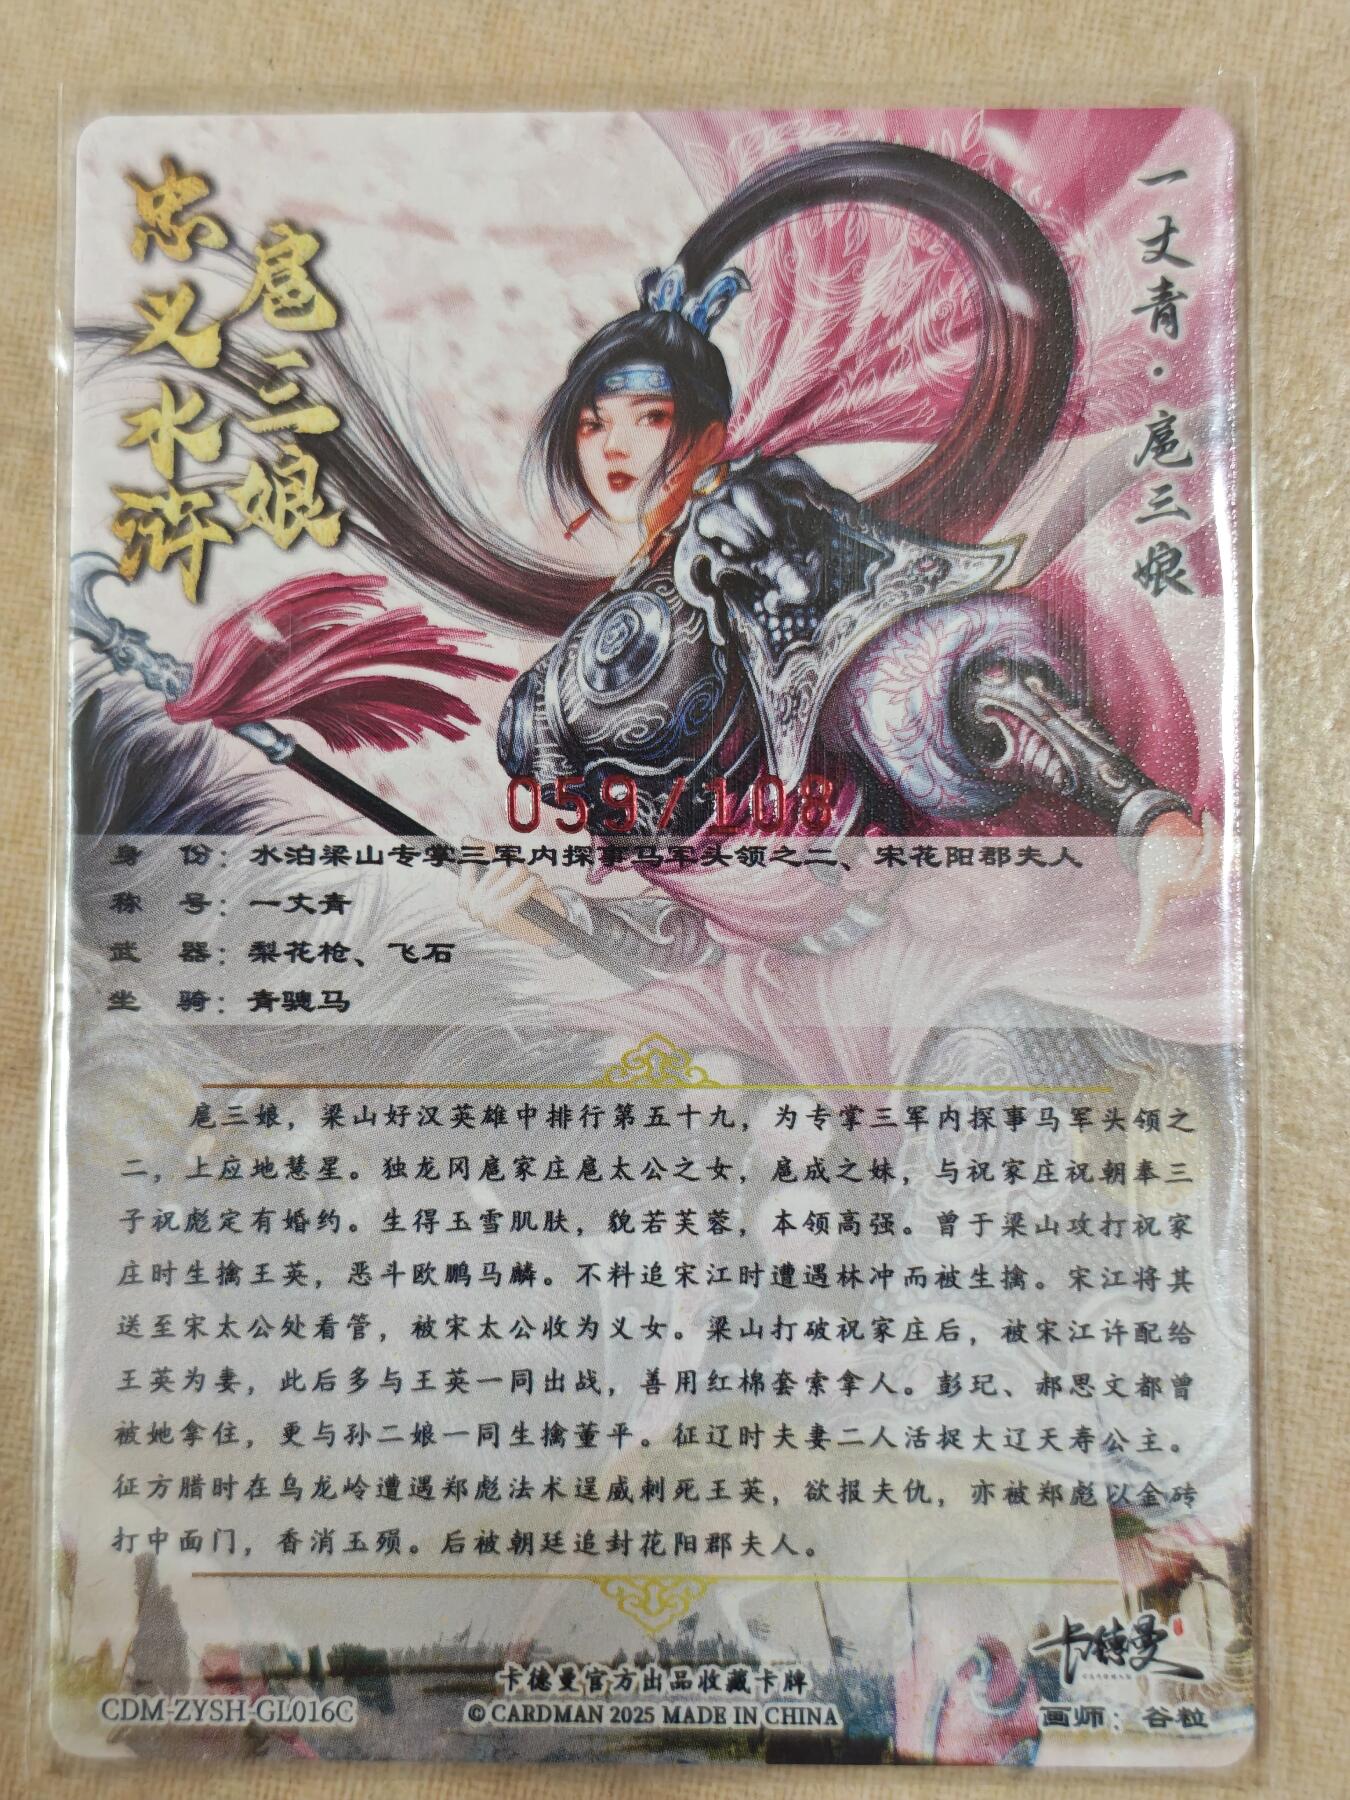 忠义水浒
扈三娘
一丈青·扈三娘
059/108
身 份：水泊梁山专掌三军内探事马军头领之二、宋花阳郡夫人
称 号：一丈青
武 器：梨花枪、飞石
坐 骑：青骢马
扈三娘，梁山好汉英雄中排行第五十九，为专掌三军内探事马军头领之
二，上应地慧星。独龙冈扈家庄扈太公之女，扈成之妹，与祝家庄祝朝奉三
子祝彪定有婚约。生得玉雪肌肤，貌若芙蓉，本领高强。曾于梁山攻打祝家
庄时生擒王英，恶斗欧鹏马麟。不料追宋江时遭遇林冲而被生擒。宋江将其
送至宋太公处看管，被宋太公收为义女。梁山打破祝家庄后，被宋江许配给
王英为妻，此后多与王英一同出战，善用红棉套索拿人。彭玘、郝思文都曾
被她拿住，更与孙二娘一同生擒董平。征辽时夫妻二人活捉大辽天寿公主。
征方腊时在乌龙岭遭遇郑彪法术逞威刺死王英，欲报夫仇，亦被郑彪以金砖
打中面门，香消玉殒。后被朝廷追封花阳郡夫人。
卡德曼
卡德曼官方出品收藏卡牌
CDM-ZYSH-GL016C
© CARDMAN 2025 MADE IN CHINA
画师：谷粒